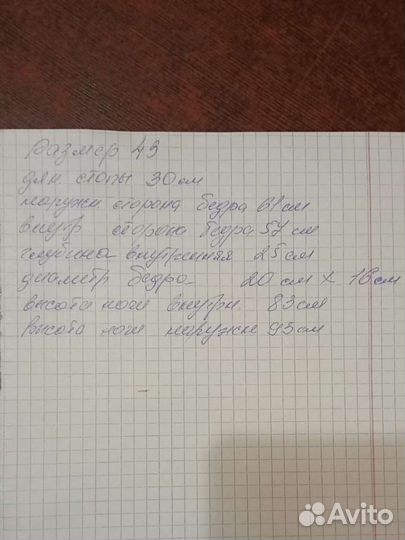 Размер 43
длн. стопы 30 см
наружн сторона бедра 61 см
внутр сторона бедра 57 см
глубина внутренняя 25 см
диаметр бедра 20 см х 16 см
высота ноги внутрн. 83 см
высота ноги наружн 95 см
Avito